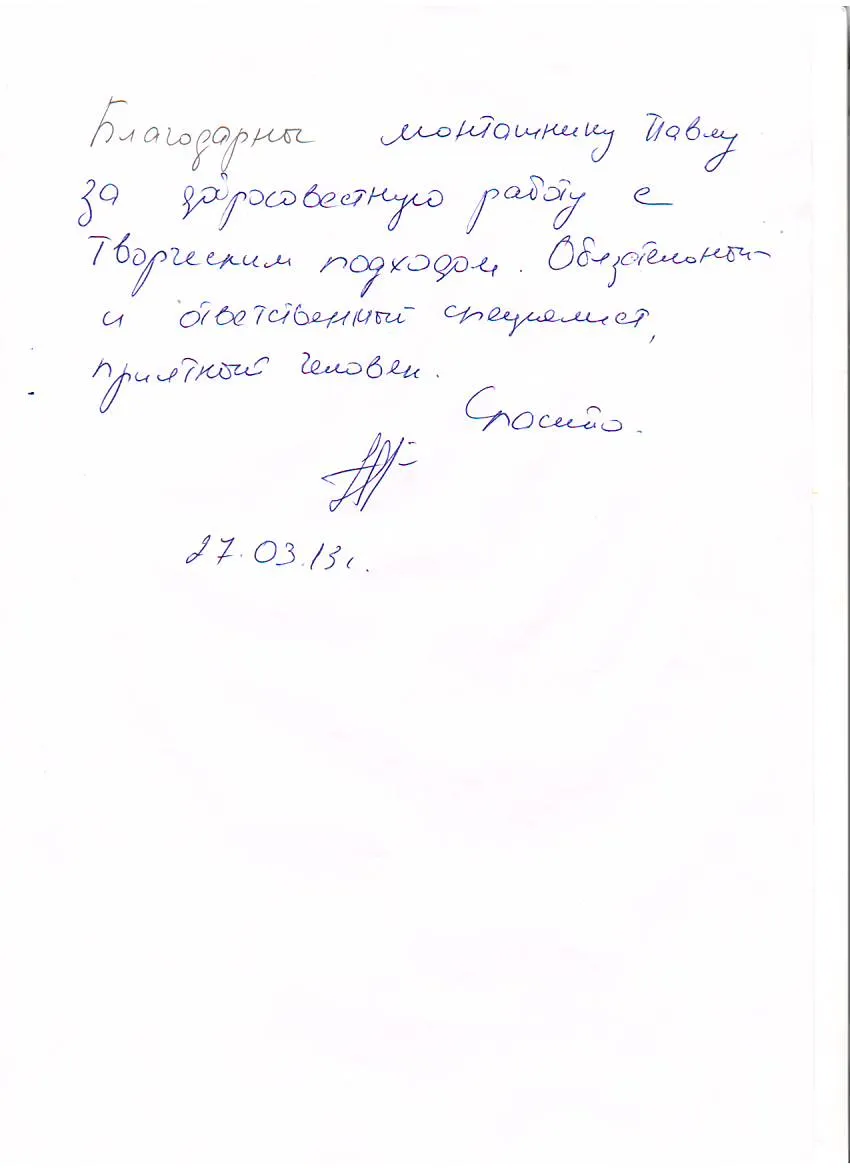 Благодарны монташнику Павлу
за добросовестную работу с
творческим подходом. Обязательный
и ответственный специалист,
приятный человек.
Спасибо.
27.03.13г.